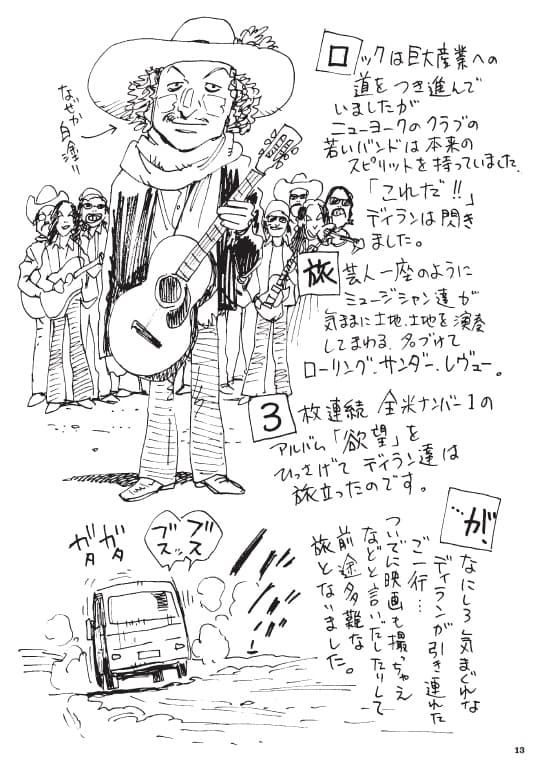 ロックは巨大産業への
道をつき進んで
いましたが
ニューヨークのクラブの
若いバンドは本来の
スピリットを持っていました。
「これだ!!」
ディランは閃き
ました。
なぜか
白塗り!!
旅芸人一座のように
ミュージシャン達が
気ままに土地、土地を演奏
してまわる。名づけて
ローリング・サンダー・レヴュー。
3枚連続 全米ナンバー1の
アルバム「欲望」を
ひっさげて ディラン達は
旅立ったのです。
…が!
なにしろ気まぐれな
ディランが引き連れた
ご一行…
ついでに映画も撮っちゃえ
などと言いだしたりして
前途多難な
旅となりました。
ブスブスッ
ガタガタ
13